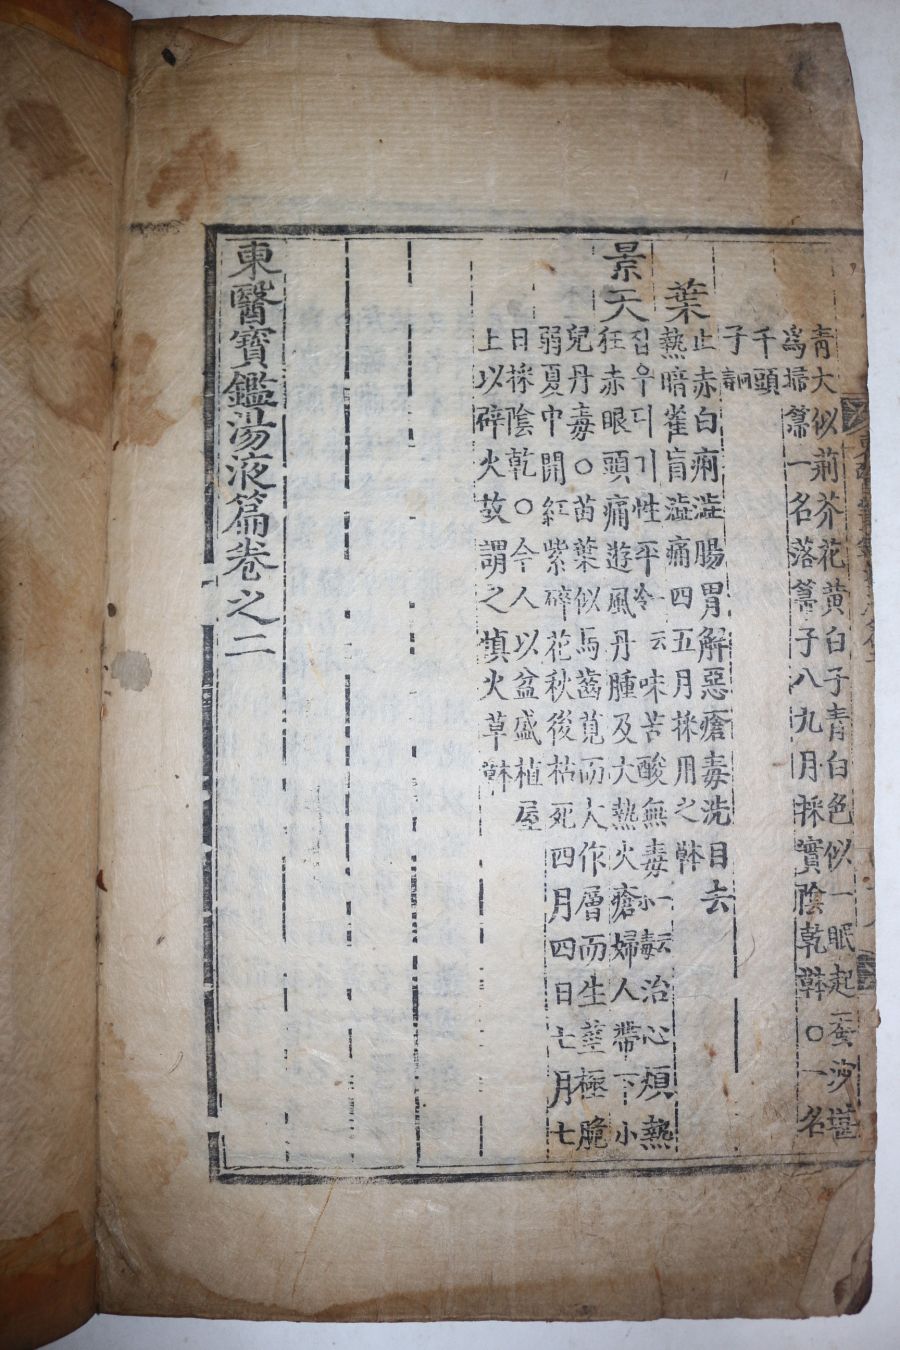 青大似荊芥花黃白子青白色似一眠起蚕沙堪
爲掃箒一名落箒子八九月採實陰乾 本草 ○一名
千頭
子
葉
止赤白痢澁腸胃解惡瘡毒洗目去
熱暗雀盲澁痛四五月採用之 本草
景天
집우디기性平 一云冷 味苦酸無毒 一云小毒 治心煩熱
狂赤眼頭痛遊風丹腫及大熱火瘡婦人帶下小
兒丹毒○苗葉似馬齒莧而大作層而生莖極脆
弱夏中開紅紫碎花秋後枯死四月四日七月七
日採陰乾○今人以盆盛植屋
上以辟火故謂之愼火草 本草
東醫寶鑑湯液篇卷之二